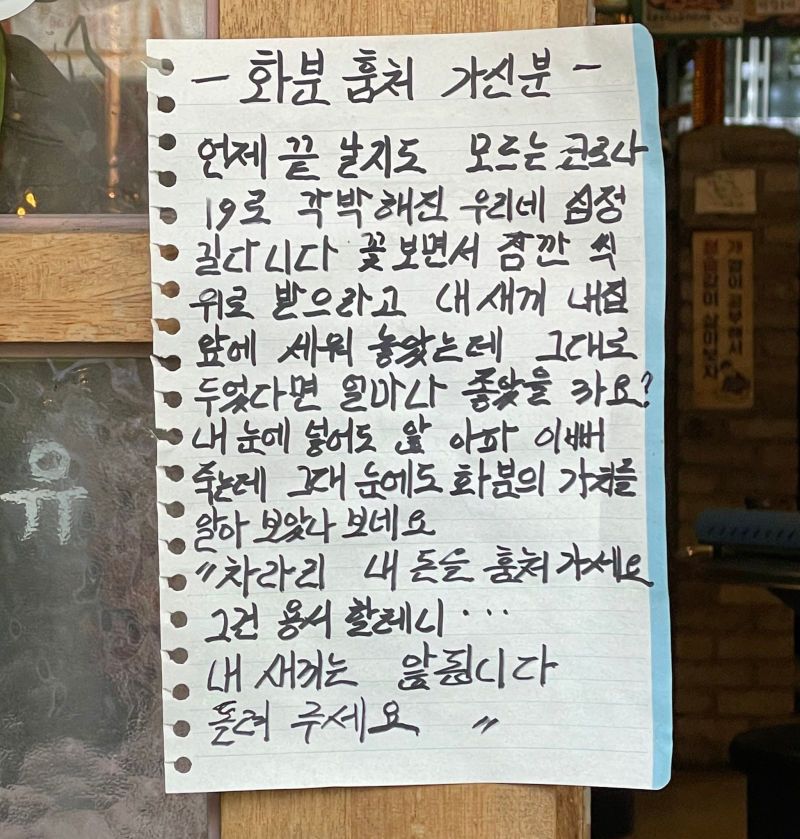 - 화분 훔쳐 가신분 -
언제 끝 날지도 모르는 코로나
19로 각박해진 우리네 심정
길다니다 꽃보면서 잠깐 씩
위로 받으라고 내새끼 내집
앞에 세워 놓았는데 그대로
두었다면 얼마나 좋았을 까요?
내 눈에 넣어도 않 아파 이뻐
죽는데 그대 눈에도 화분의 가치를
알아 보았나 보네요
"차라리 내 돈을 훔쳐가세요
그건 용서 할테니...
내 새끼는 않됩니다
돌려 주세요 "
유